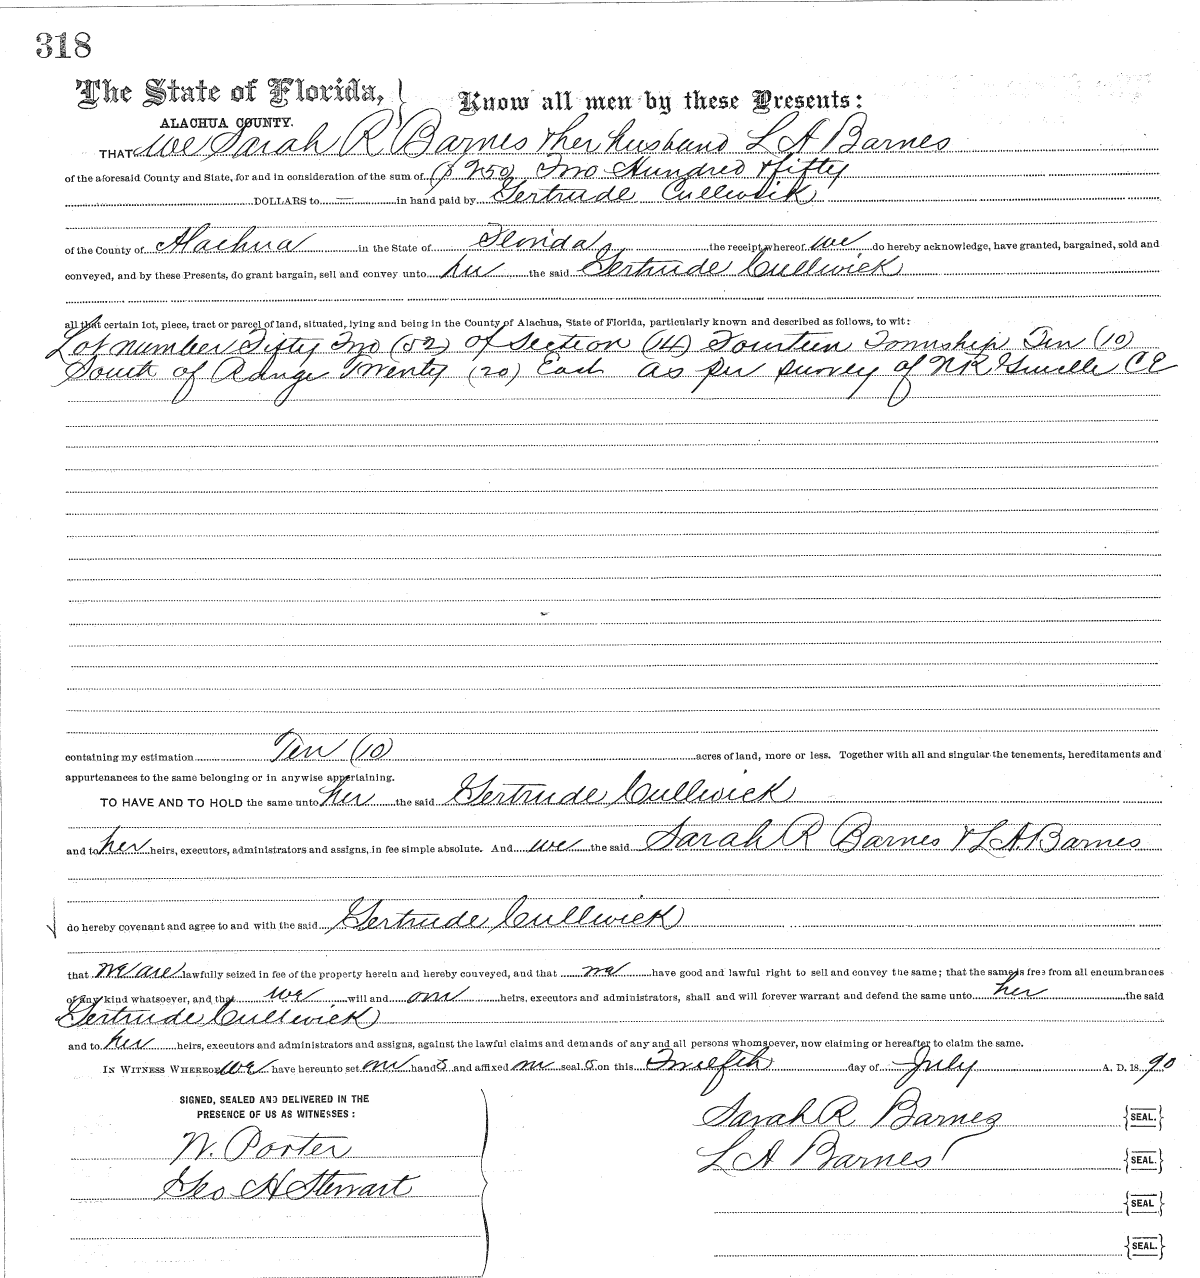 318
The State of Florida, } Know all men by these Presents:
ALACHUA COUNTY.
THAT We Sarah R Barnes & her husband L A Barnes
of the aforesaid County and State, for and in consideration of the sum of ($250 Two Hundred & fifty
DOLLARS to — in hand paid by Gertrude Cullwick
of the County of Alachua in the State of Florida, the receipt whereof we do hereby acknowledge, have granted, bargained, sold and
conveyed, and by these Presents, do grant bargain, sell and convey unto her the said Gertrude Cullwick
all that certain lot, piece, tract or parcel of land, situated, lying and being in the County of Alachua, State of Florida, particularly known and described as follows, to wit:
Lot number Fifty Two (52) of Section (14) Fourteen Township Ten (10)
South of Range Twenty (20) East as per survey of NR C E
containing my estimation Ten (10) acres of land, more or less. Together with all and singular the tenements, hereditaments and
appurtenances to the same belonging or in anywise appertaining.
TO HAVE AND TO HOLD the same unto her the said Gertrude Cullwick
and to her heirs, executors, administrators and assigns, in fee simple absolute. And we the said Sarah R Barnes & L. A. Barnes
do hereby covenant and agree to and with the said Gertrude Cullwick
that we are lawfully seized in fee of the property herein and hereby conveyed, and that we have good and lawful right to sell and convey the same; that the same is free from all encumbrances
of any kind whatsoever, and that we will and our heirs, executors and administrators, shall and will forever warrant and defend the same unto her the said
Gertrude Cullwick
and to her heirs, executors and administrators and assigns, against the lawful claims and demands of any and all persons whomsoever, now claiming or hereafter to claim the same.
IN WITNESS WHEREOF we have hereunto set our hand s and affixed our seal s on this Twelfth day of July A. D. 18 90
SIGNED, SEALED AND DELIVERED IN THE
PRESENCE OF US AS WITNESSES:
W. Porter
Geo H Stewart
Sarah R Barnes {SEAL.}
L A Barnes {SEAL.}
{SEAL}
{SEAL.}